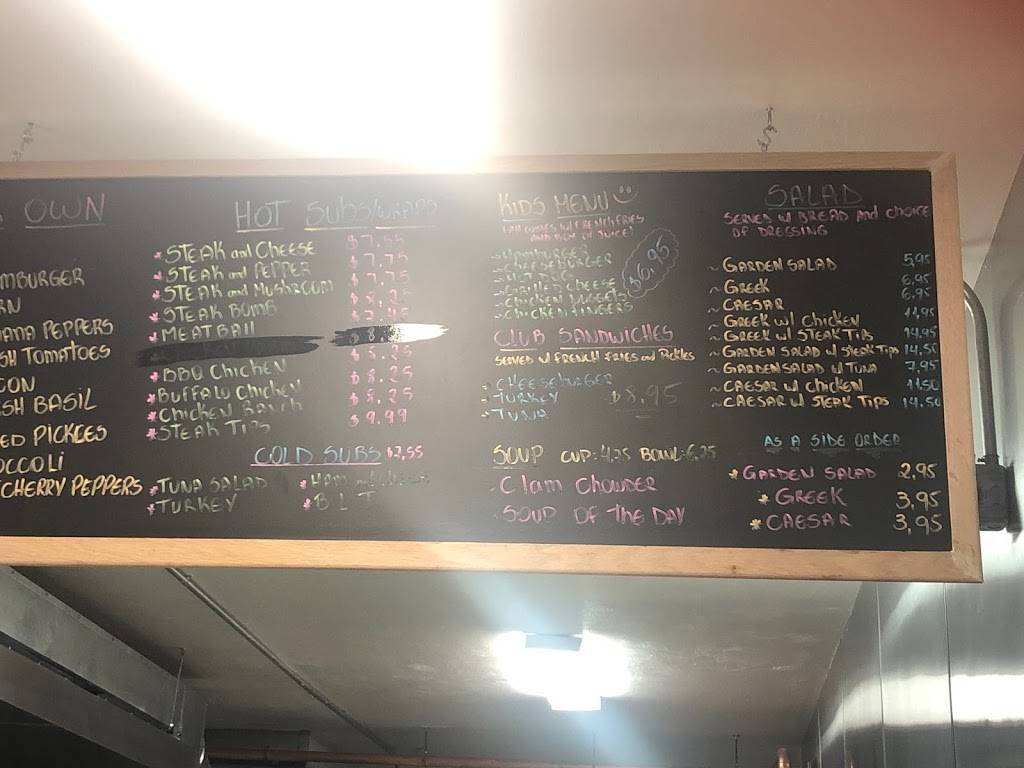 OWN
MBURGER
RN
ANA PEPPERS
SH TOMATOES
CON
SH BASIL
ED PICKLES
OCCOLI
CHERRY PEPPERS
HOT SUBS/WRAPS
STEAK and CHEESE
STEAK and PEPPER $7.75
STEAK and MUSHROOM $7.75
STEAK BOMB
MEATBALL
BBQ CHICKEN
BUFFALO CHICKEN $8.25
CHICKEN RANCH $8.25
STEAK TIPS $9.99
COLD SUBS
TUNA SALAD
TURKEY
HAM and CHEESE
B L T
KIDS MENU
HAMBURGER
CHEESEBURGER
GRILLED CHEESE
CHICKEN NUGGETS
CHICKEN FINGERS
$6.95
CLUB SANDWICHES
SERVED W FRENCH FRIES and PICKLES
CHEESEBURGER
TURKEY $8.95
TUNA
SOUP CUP: 4.25 BOWL: 6.25
Clam CHOWDER
SOUP OF THE DAY
SALAD
SERVED W BREAD and CHOICE
OF DRESSING
~ GARDEN SALAD 5,95
~ GREEK 6.95
~ CAESAR 6.95
~ GREEK W/ CHICKEN 11,95
~ GREEK W/ STEAK TIPS 14.95
~ GARDEN SALAD W STEAK TIPS 14,50
~ GARDEN SALAD W TUNA 7,95
~ CAESAR W CHICKEN 11.50
~ CAESAR W STEAK TIPS 14.50
AS A SIDE ORDER
* GARDEN SALAD 2,95
* GREEK 3,95
* CAESAR 3,95